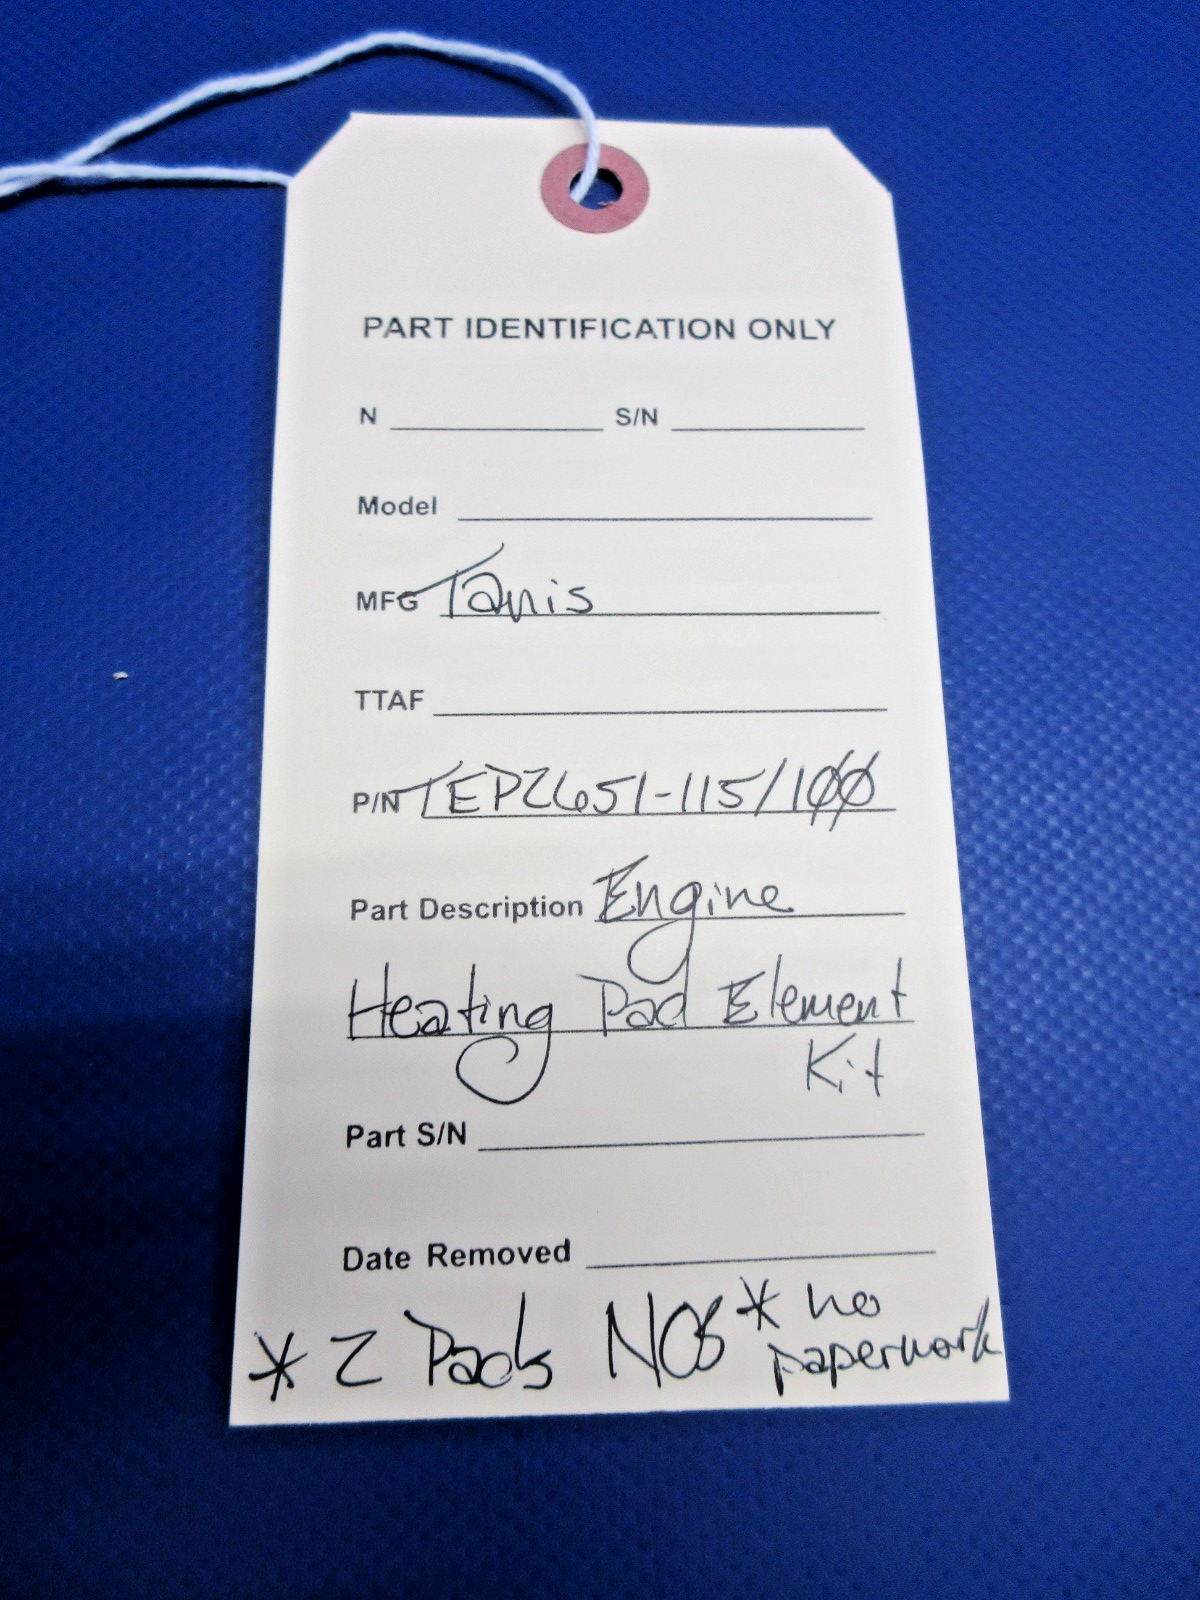 PART IDENTIFICATION ONLY
N S/N
Model
MFG Tanis
TTAF
P/N TEP2651-115/100
Part Description Engine
Heating Pad Element
Kit
Part S/N
Date Removed
* 2 Pads NOS * no
paperwork